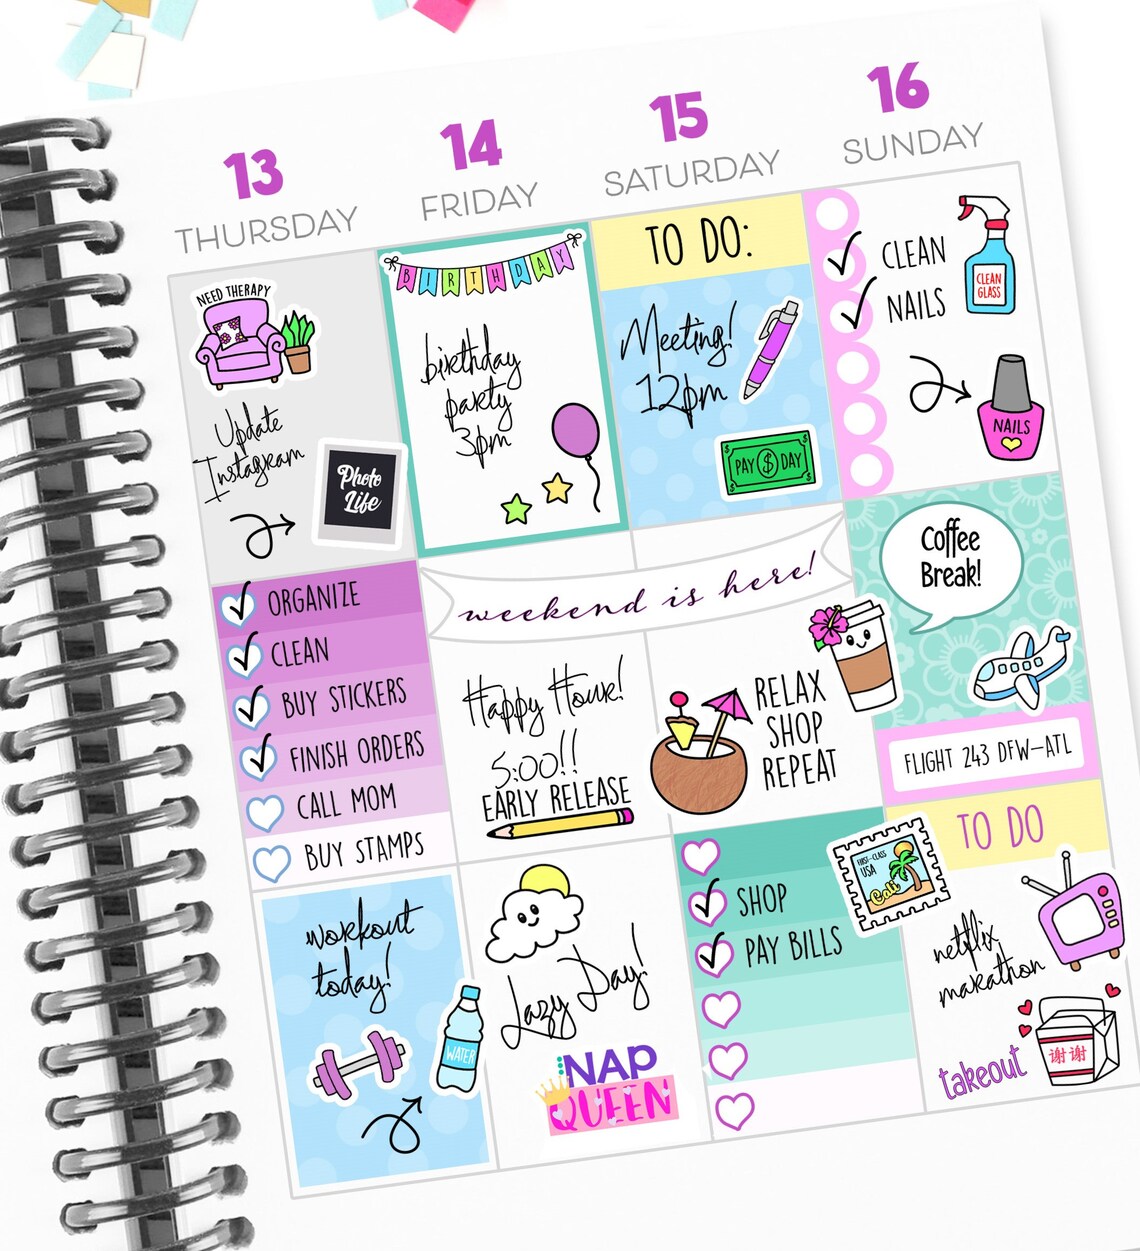 13
THURSDAY
14
FRIDAY
15
SATURDAY
16
SUNDAY
NEED THERAPY
Update
Instagram
Photo
Life
ORGANIZE
CLEAN
BUY STICKERS
FINISH ORDERS
CALL MOM
BUY STAMPS
workout
today!
WATER
BIRTHDAY
birthday
party
3pm
weekend is here!
Happy Hour!
5:00!!
EARLY RELEASE
Lazy Day!
NAP
QUEEN
TO DO:
Meeting!
12pm
PAY $ DAY
RELAX
SHOP
REPEAT
SHOP
PAY BILLS
FIRST-CLASS
USA
Cali
CLEAN
NAILS
CLEAN
GLASS
NAILS
Coffee
Break!
FLIGHT 243 DFW-ATL
TO DO
netflix
marathon
takeout
谢谢